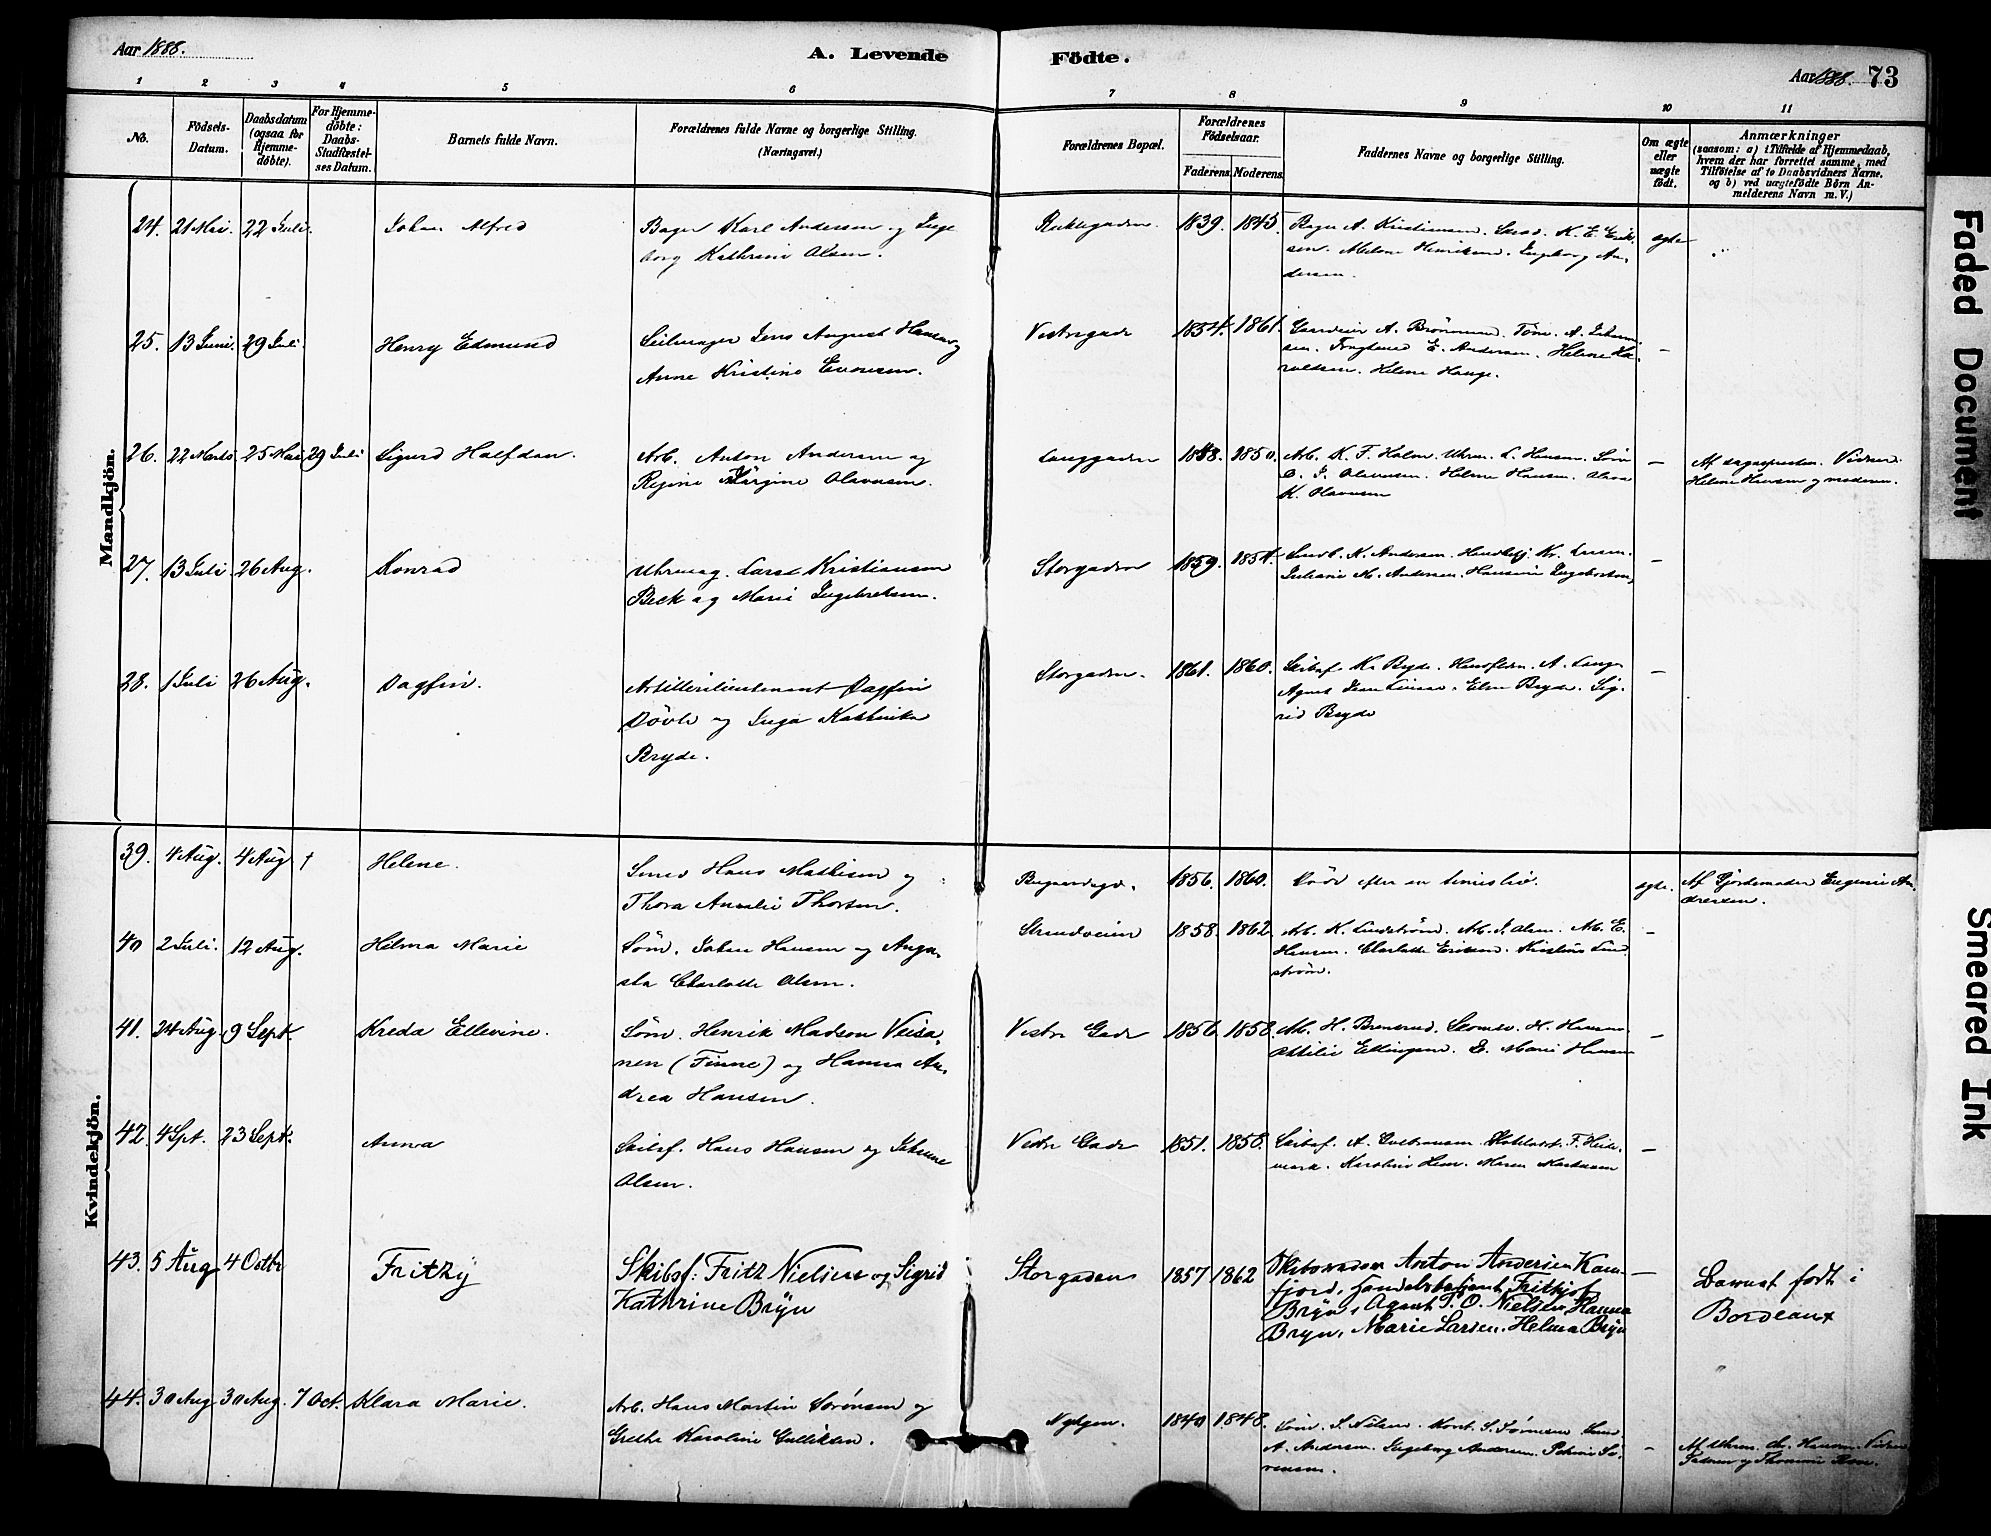 Aar 1888.
A. Levende Födte.
Aar 1888. 73
1 2 3 4 5 6 7 8 9 10 11
No.
Födsels-
Datum.
Daabsdatum
(ogsaa for
Hjemme-
döbte).
For Hjemme-
döbte:
Daabs-
Stadfæstel-
ses Datum.
Barnets fulde Navn.
Forældrenes fulde Navne og borgerlige Stilling.
(Næringsvei.)
Forældrenes Bopæl.
Forældrenes
Födselsaar.
Faderens. Moderens.
Faddernes Navne og borgerlige Stilling.
Om ægte
eller
uægte
födt.
Anmærkninger
(saasom: a) i Tilfælde af Hjemmedaab,
hvem der har forrettet samme, med
Tilföielse af to Daabsvidners Navne.
og b) ved uægtefödte Börn An-
melderens Navn m. V.)
Mandkjön.
24. 21 Mai. 22 Juli. Johan Alfred
Bager Karl Andersen og Inge
borg Kathrine Olsen.
1839. 1845
Bager A. Kristiansen. K. E. Erik-
sen. Henriksen. Ingeborg An-
dersen.
ægte
25. 13 Juni. 29 Juli. Henry Edmund
Seilmager Jens August Hansen og
Anne Kristine Evensen.
Vestregade 1854. 1861.
E. Andersen. Helene Ha-
raldsen. Helene Hauge.
–
26. 22 Marts 25 Mai 29 Juli Sigurd Halfdan.
Arb. Anton Andersen og
Regine Jörgine Olavesen.
Langgaden 1858. 1850.
Arb. K. F. Holm. Uhrm. L. Hansen.
O. J. Olavesen. Helene Hansen.
K. Olavesen
–
Af sognepresten. Vidner
Helene Hansen og moderen.
27. 13 Juli 26 Aug. Konrad
Uhrmag. Carl Kristiansen
Beck og Marie Ingebretsen.
Storgaden 1859. 1854.
K. Andersen. Kr.
Juliane M. Andersen. Hansine Ingebretsen
–
28. 1 Juli 26 Aug. Dagfin.
Artillerilieutenant Dagfin
Dövle og Inga Kathinka
Bryde.
Storgaden. 1861. 1860.
Skibsf. K. Bryde. A. Lange
Agnes Elen Bryde. Sig-
rid Bryde
–
Kvindekjön.
39. 4 Aug. 4 Aug † Helene.
Smed Hans Mathisen og
Thora Amalie Thorsen.
1856. 1860.
Död efter en times liv.
ægte.
Af Gjordemoder Eugenie An-
dresen.
40 2 Juli. 12 Aug. Helma Marie
Söm. Johan Hansen og Augu-
sta Charlotte Olsen.
Strandveien 1858 1862
Arb. K. Lindström. Arb. J. Olsen. Arb. E.
Hansen. Charlotte Eriksen. Kristine Lind
ström.
–
41. 24 Aug. 9 Sept. Kreda Ellevine.
Söm. Henrik Madson Veisa-
nen (Finne) og Hanna An-
drea Hansen.
Vestre Gade 1856 1858.
Arb. H. H. Hansen
E. Marie Hansen
–
42. 4 Spt. 23 Sept. Anna
Skibsf. Hans Hansen og Johanne
Olsen.
Vestre Gade 1851. 1858.
Skibsf. A. Gulbransen. F. Hede-
mark. Karoline Maren
–
43. 5 Aug 4 Octbr Fritzy
Skibsf: Fritz Nielsen og Sigrid
Kathrine Bryn
Storgaden 1857 1862
Skibsreder Anton Andersen Kam-
fjord, Handelsbetjent Fritjof
Bryn, Agent T. O. Nielsen, Hanna
Bryn, Marie Larsen, Helma Bryn
–
Barnet födt i
Bordeaux
44. 30 Aug 30 Aug. 7 Oct. Klara Marie.
Arb. Hans Martin Sörensen og
Grethe Karoline Gulliksen.
1840 1848.
Söm. J. Nilsen. S. Sörensen
A. Andersen. Ingeborg Andersen. Petrine Sö-
rensen.
–
Af Uhrm. Chr. Hansen. Vidner
Faderen og
Faded Document
Smeared Ink